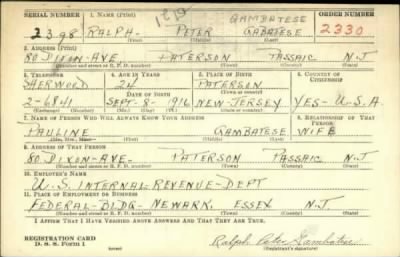 SERIAL NUMBER 1. NAME (Print) ORDER NUMBER
GAMBATESE
2398 RALPH - PETER GABATESE 2330
(First) (Middle) (Last)
2. ADDRESS (Print)
80 DIXON-AVE PATERSON PASSAIC N.J
(Number and street or R. F. D. number) (Town) (County) (State)
3. TELEPHONE 4. AGE IN YEARS 5. PLACE OF BIRTH 6. COUNTRY OF CITIZENSHIP
SHERWOOD 24 PATERSON
DATE OF BIRTH (Town or county)
2-6841 SEPT-8-1916 NEW-JERSEY YES-U.S.A.
(Exchange) (Number) (Mo.) (Day) (Yr.) (State or country)
7. NAME OF PERSON WHO WILL ALWAYS KNOW YOUR ADDRESS RELATIONSHIP OF THAT PERSON
PAULINE GAMBATESE WIFE
(First) (Middle) (Last)
8. ADDRESS OF THAT PERSON
80 DIXON-AVE- PATERSON PASSAIC N.J
(Number and street or R. F. D. number) (Town) (County) (State)
10. EMPLOYER'S NAME
U.S. INTERNAL-REVENUE-DEPT
11. PLACE OF EMPLOYMENT OR BUSINESS
FEDERAL-BLDG- NEWARK, ESSEX N.J
(Number and street or R. F. D. number) (Town) (County) (State)
I AFFIRM THAT I HAVE VERIFIED ABOVE ANSWERS AND THAT THEY ARE TRUE.
REGISTRATION CARD
D. S. S. Form 1
Ralph Peter Gambatese
(Registrant's signature)